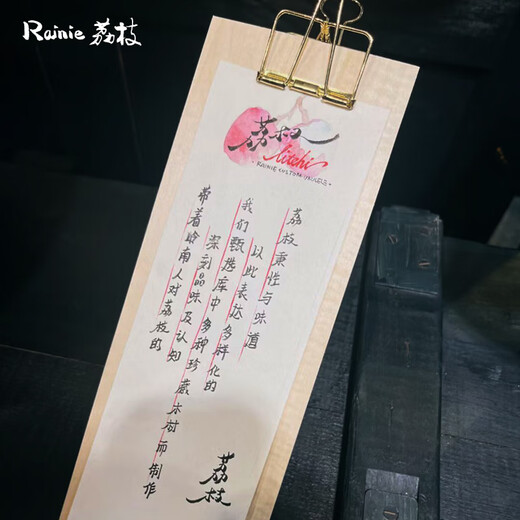 Rainie 荔枝
荔枝
litchi
RAINIE CUSTOM
带着岭南人对荔枝的
深刻品味及认知
我们甄选库中多种珍藏木材而制作
以此表达多样化的
荔枝秉性与味道
荔枝